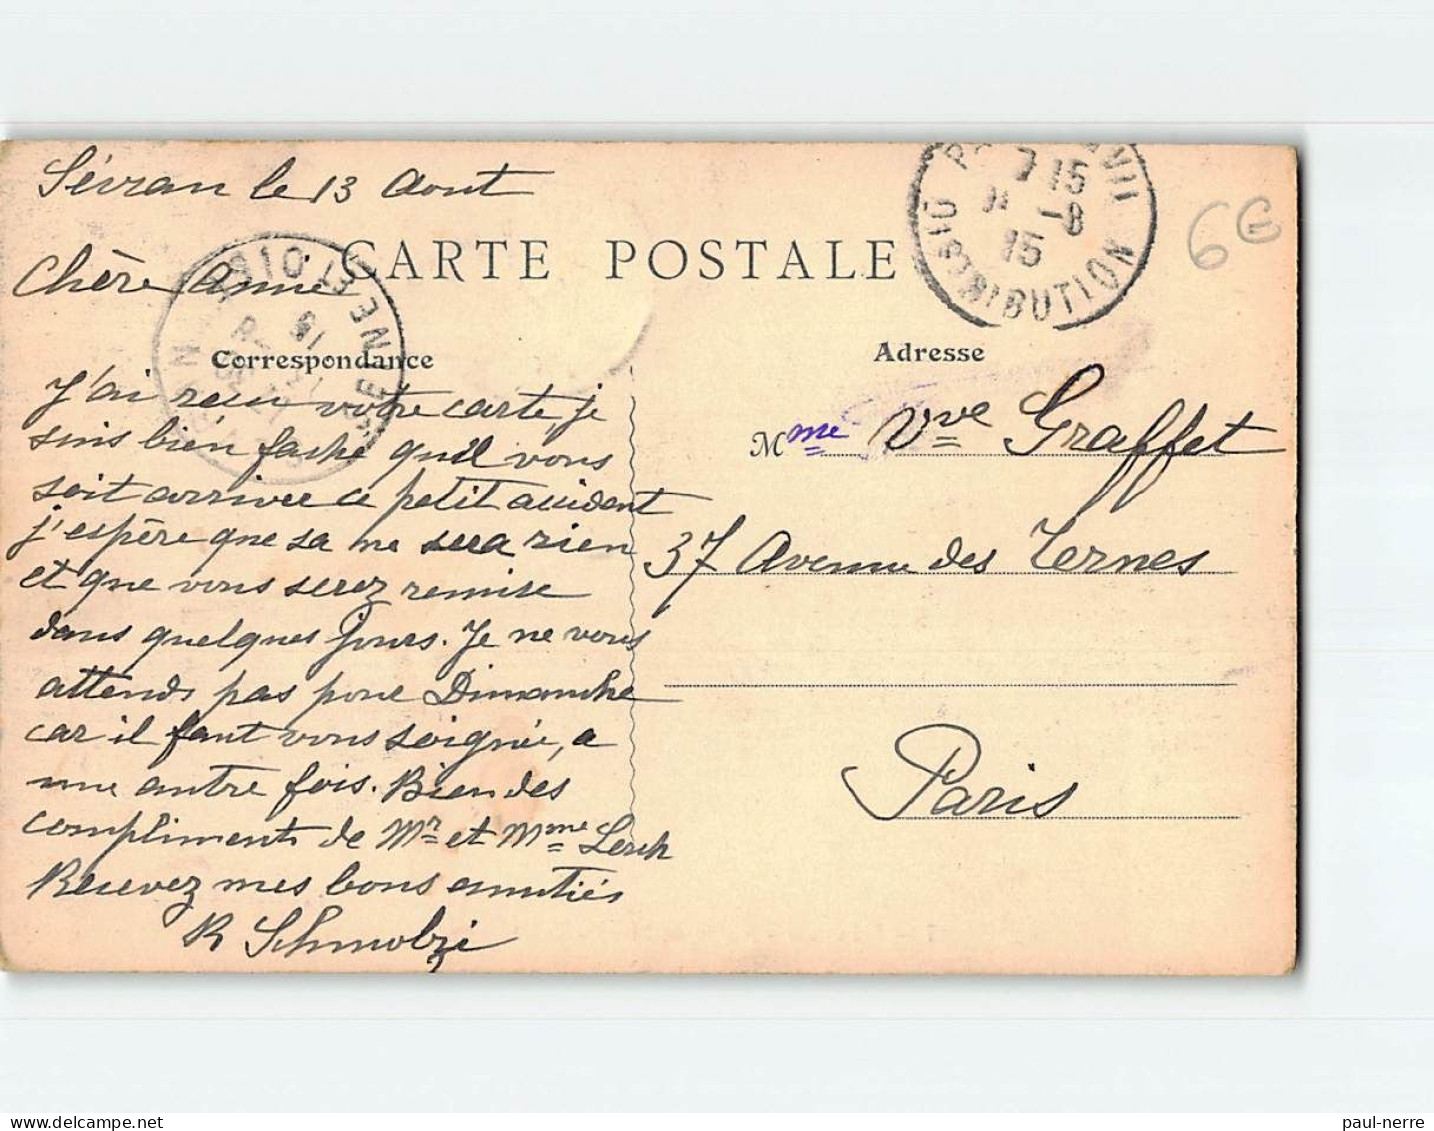 Sévran le 13 Aout
CARTE POSTALE
Chère Amie
Correspondance
J'ai recu votre carte, je
suis bien fache quil vous
soit arrivee ce petit accident
j'espère que sa ne sera rien
et que vous serez remise
dans quelques jours. Je ne vous
attends pas pour Dimanche
car il faut vous soignée, a
une autre fois. Bien des
compliments de Mr et Mme Lerch
Recevez mes bons amitiés
R Schmolzi
DISTRIBUTION
7 15
-8
15
6€
Adresse
Mme Vve Graffet
37 Avenue des Ternes
Paris
SEINE-ET-OISE
paul-nerre